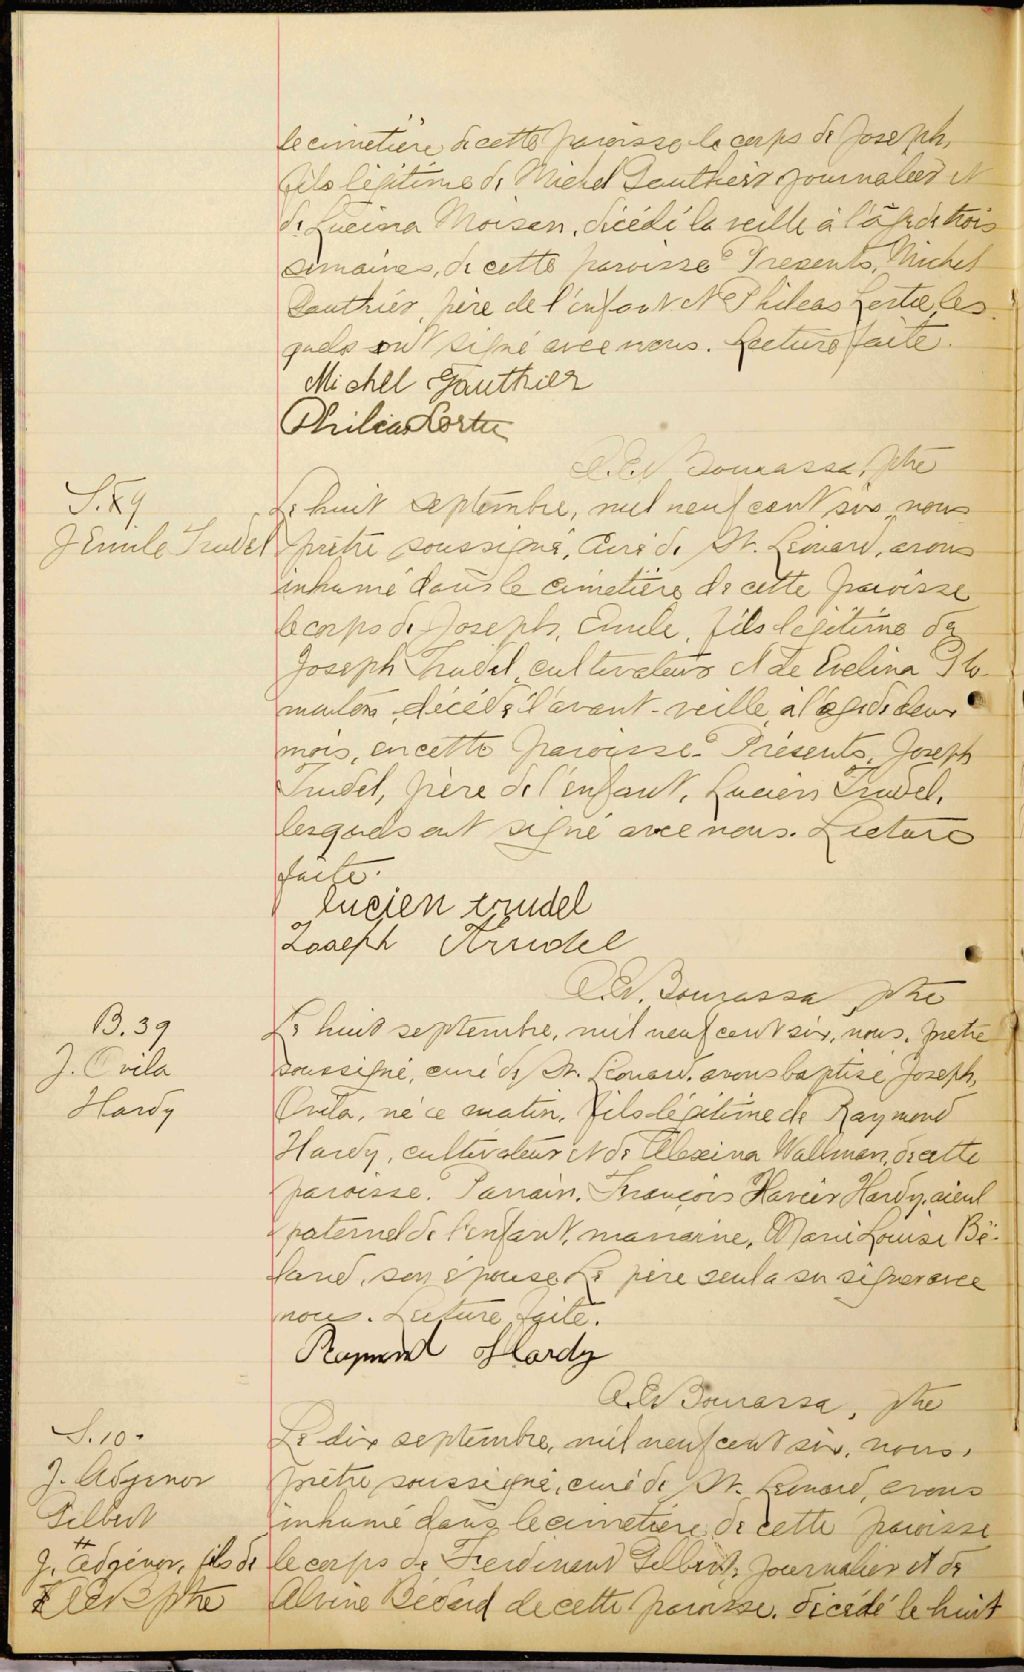 le cimetière de cette paroisse le corps de Joseph,
fils légitime de Michel Gauthier journalier et
de Lucina Moisan, décédé la veille à l'âge de trois
semaines, de cette paroisse. Présents, Michel
Gauthier, père de l'enfant et Philéas Lortie, les-
quels ont signé avec nous. Lecture faite.
Michel Gauthier
Philéas Lortie
Bourassa, ptre
S.
J Emile Trudel
Le huit septembre, mil neuf cent six, nous
prêtre soussigné, curé de St. Léonard, avons
inhumé dans le cimetière de cette paroisse
le corps de Joseph, Emile, fils légitime de
Joseph Trudel, cultivateur et de Evelina
décédé l'avant-veille, à l'âge de deux
mois, en cette paroisse. Présents, Joseph
Trudel, père de l'enfant, Lucien Trudel,
lesquels ont signé avec nous. Lecture
faite.
lucien trudel
Joseph Trudel
Bourassa, ptre
B. 39
J. Ovila
Hardy
Le huit septembre, mil neuf cent six, nous, prêtre
soussigné, curé de St. Léonard, avons baptisé Joseph,
Ovila, né ce matin, fils légitime de Raymond
Hardy, cultivateur et de Alexina Wallman, de cette
paroisse. Parrain, François Xavier Hardy, aïeul
paternel de l'enfant, marraine, Marie Louise Bé-
land, son épouse. Le père seul a su signer avec
nous. Lecture faite.
Raymond Hardy
Bourassa, ptre
S. 10.
J. Adgénor
Gilbert
J. Adgénor, fils de
ptre
Le dix septembre, mil neuf cent six, nous,
prêtre soussigné, curé de St. Léonard, avons
inhumé dans le cimetière de cette paroisse
le corps de Ferdinand Gilbert, journalier et de
Alvine Bédard de cette paroisse, décédé le huit